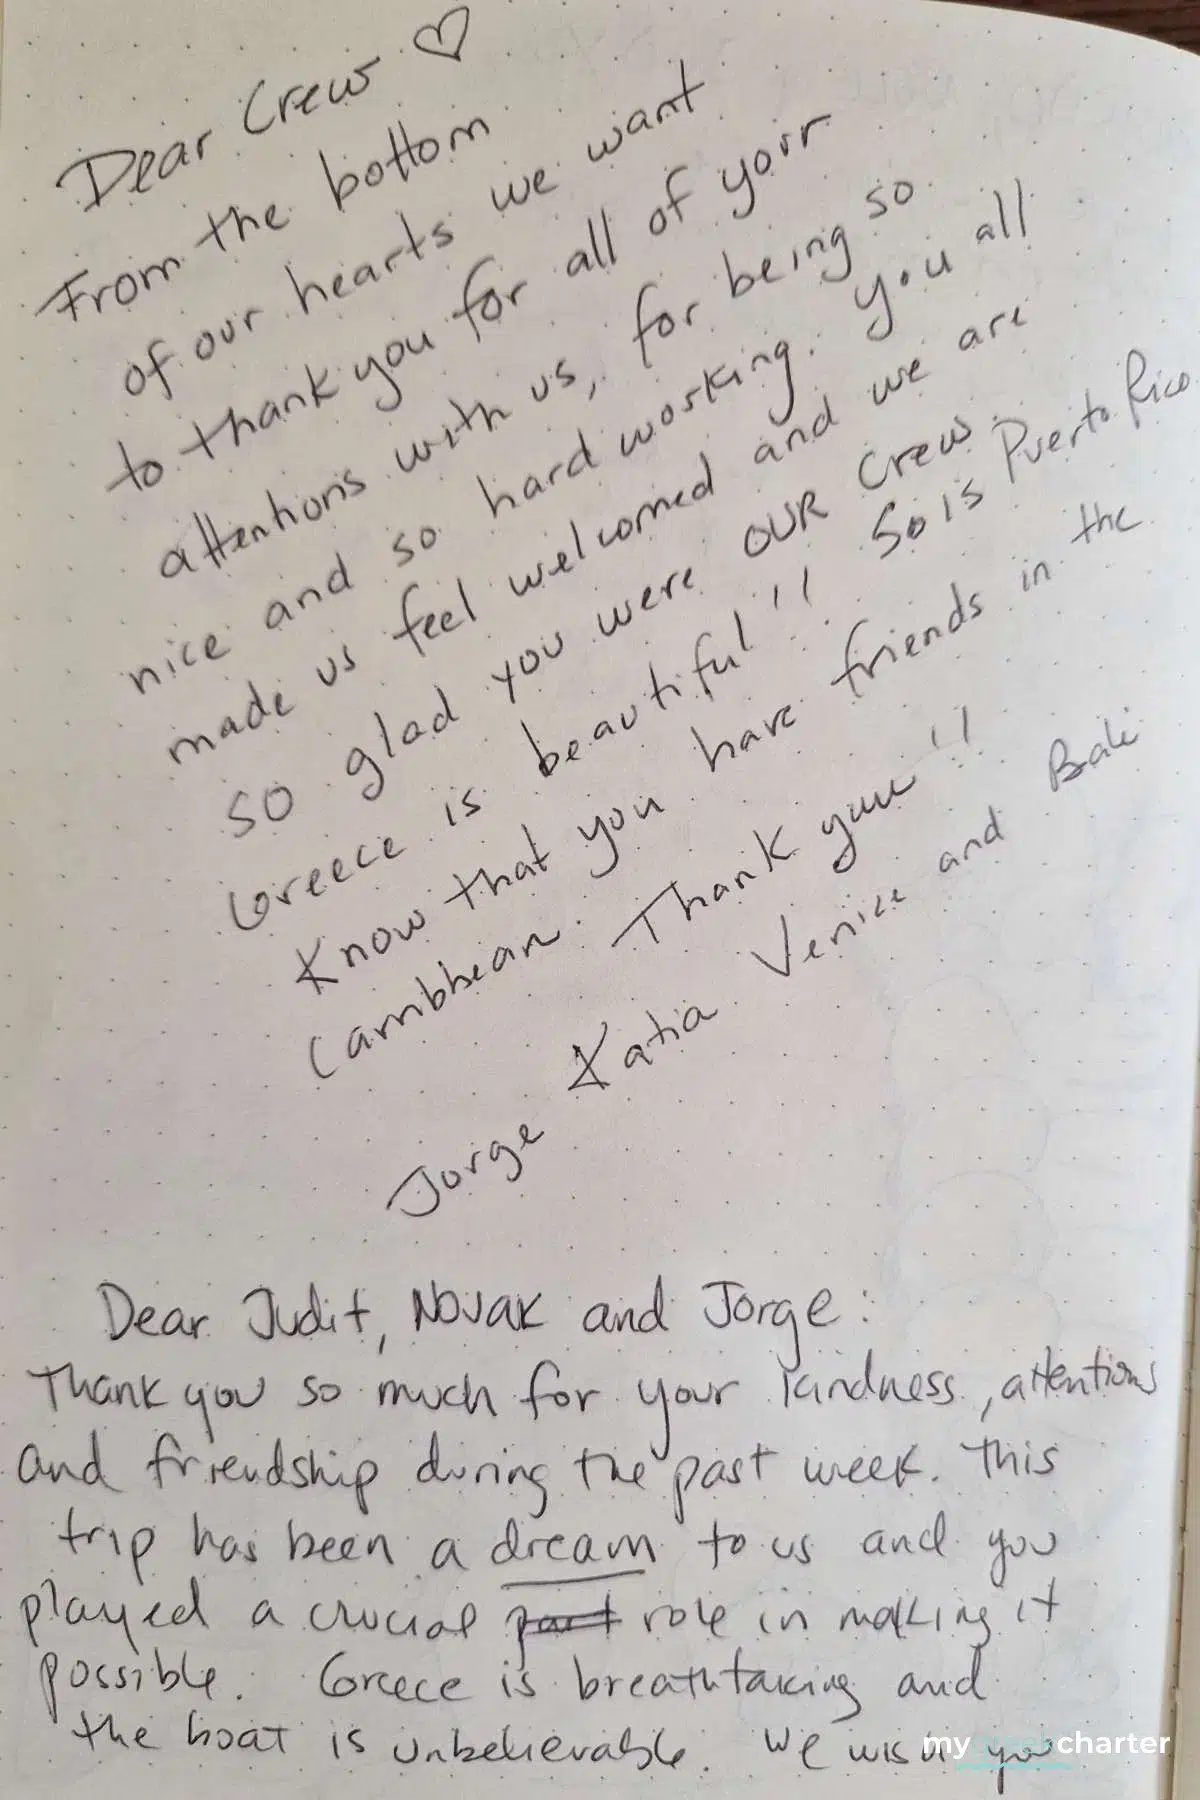 Dear Crew ♡
From the bottom
of our hearts we want
to thank you for all of your
attentions with us, for being so
nice and so hard working. you all
made us feel welcomed and we are
so glad you were OUR crew.
Greece is beautiful!! So is Puerto Rico
Know that you have friends in the
Carribbean. Thank yuu!!
Jorge Katia Venice and Bali
Dear Judit, Novak and Jorge:
Thank you so much for your kindness, attentions
and friendship during the past week. This
trip has been a dream to us and you
played a crucial part role in making it
possible. Greece is breathtaking and
the boat is unbelievable. We wish you
my charter